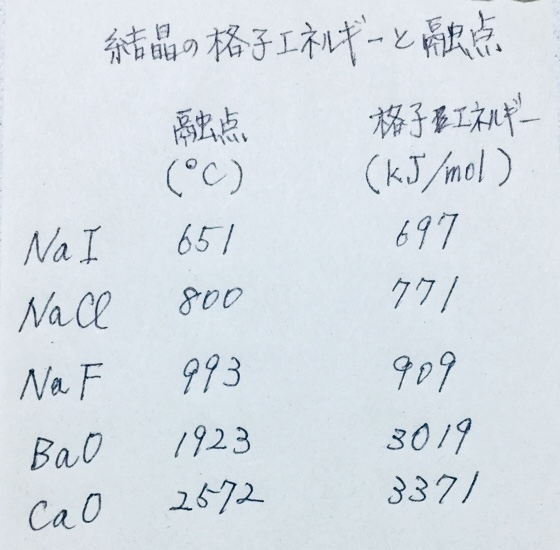 結晶の格子エネルギーと融点
融点 格子エネルギー
(°C) (kJ/mol)
NaI 651 697
NaCl 800 771
NaF 993 909
BaO 1923 3019
CaO 2572 3371